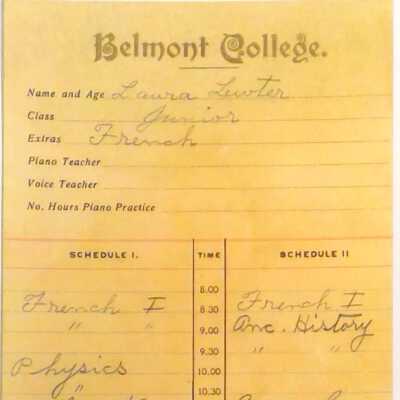 Belmont College.
Name and Age Laura Lewter
Class Junior
Extras French
Piano Teacher
Voice Teacher
No. Hours Piano Practice
SCHEDULE I. TIME SCHEDULE II
8.00
French I 8.30 French I
" " 9.00 Anc. History
9.30 " "
Physics 10.00
" 10.30